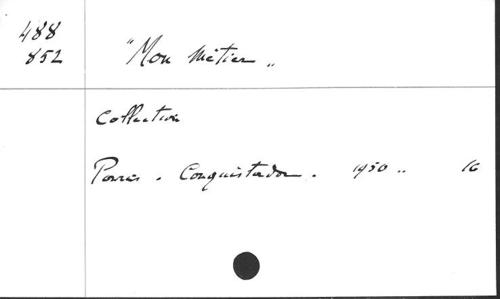 488
852
"Mon Métier"
Collection
Paris. Conquistador. 1950.. 16